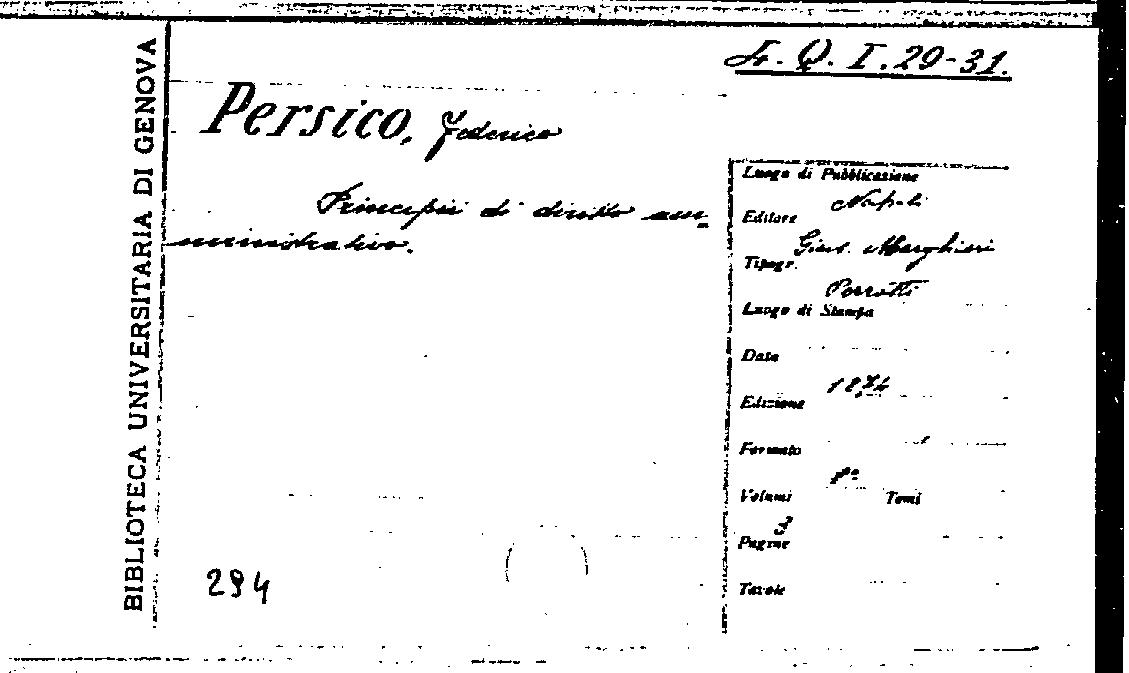 BIBLIOTECA UNIVERSITARIA DI GENOVA
4. Q. I. 29-31.
Persico, Federico
Principii di diritto am-
ministrativo.
Luogo di Pubblicazione
Napoli
Editore
Gius. Marghieri
Tipogr.
Perrotti
Luogo di Stampa
Data
1874
Edizione
Formato
8º
Volumi Tomi
3
Pagine
Tavole
294